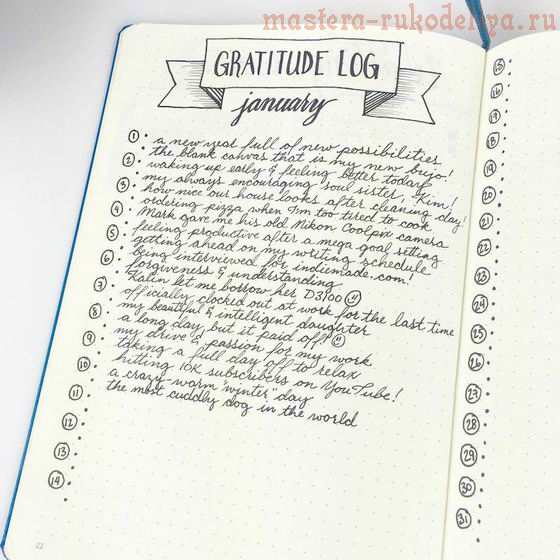 mastera-rukodeliya.ru
GRATITUDE LOG
january
1 • a new year full of new possibilities
• the blank canvas that is my new bujo!
2 • waking up early & feeling better today
• my always encouraging soul sister, Kim!
3 • how nice our house looks after cleaning day!
• ordering pizza when I'm too tired to cook
4 • Mark gave me his old Nikon Coolpix camera
• feeling productive after a mega goal setting
5 • getting ahead on my writing schedule
• being interviewed for indiemade.com!
6 • forgiveness & understanding
• Katin let me borrow her D3100
7 • officially clocked out at work for the last time
• my beautiful & intelligent daughter
8 • a long day, but it paid off!
• my drive & passion for my work
9 • taking a full day off to relax
• hitting 10K subscribers on YouTube!
10 • a crazy warm "winter" day
• the most cuddly dog in the world
11
12
13
14
22
15
16
18
19
20
21
22
23
24
25
26
27
28
29
30
31